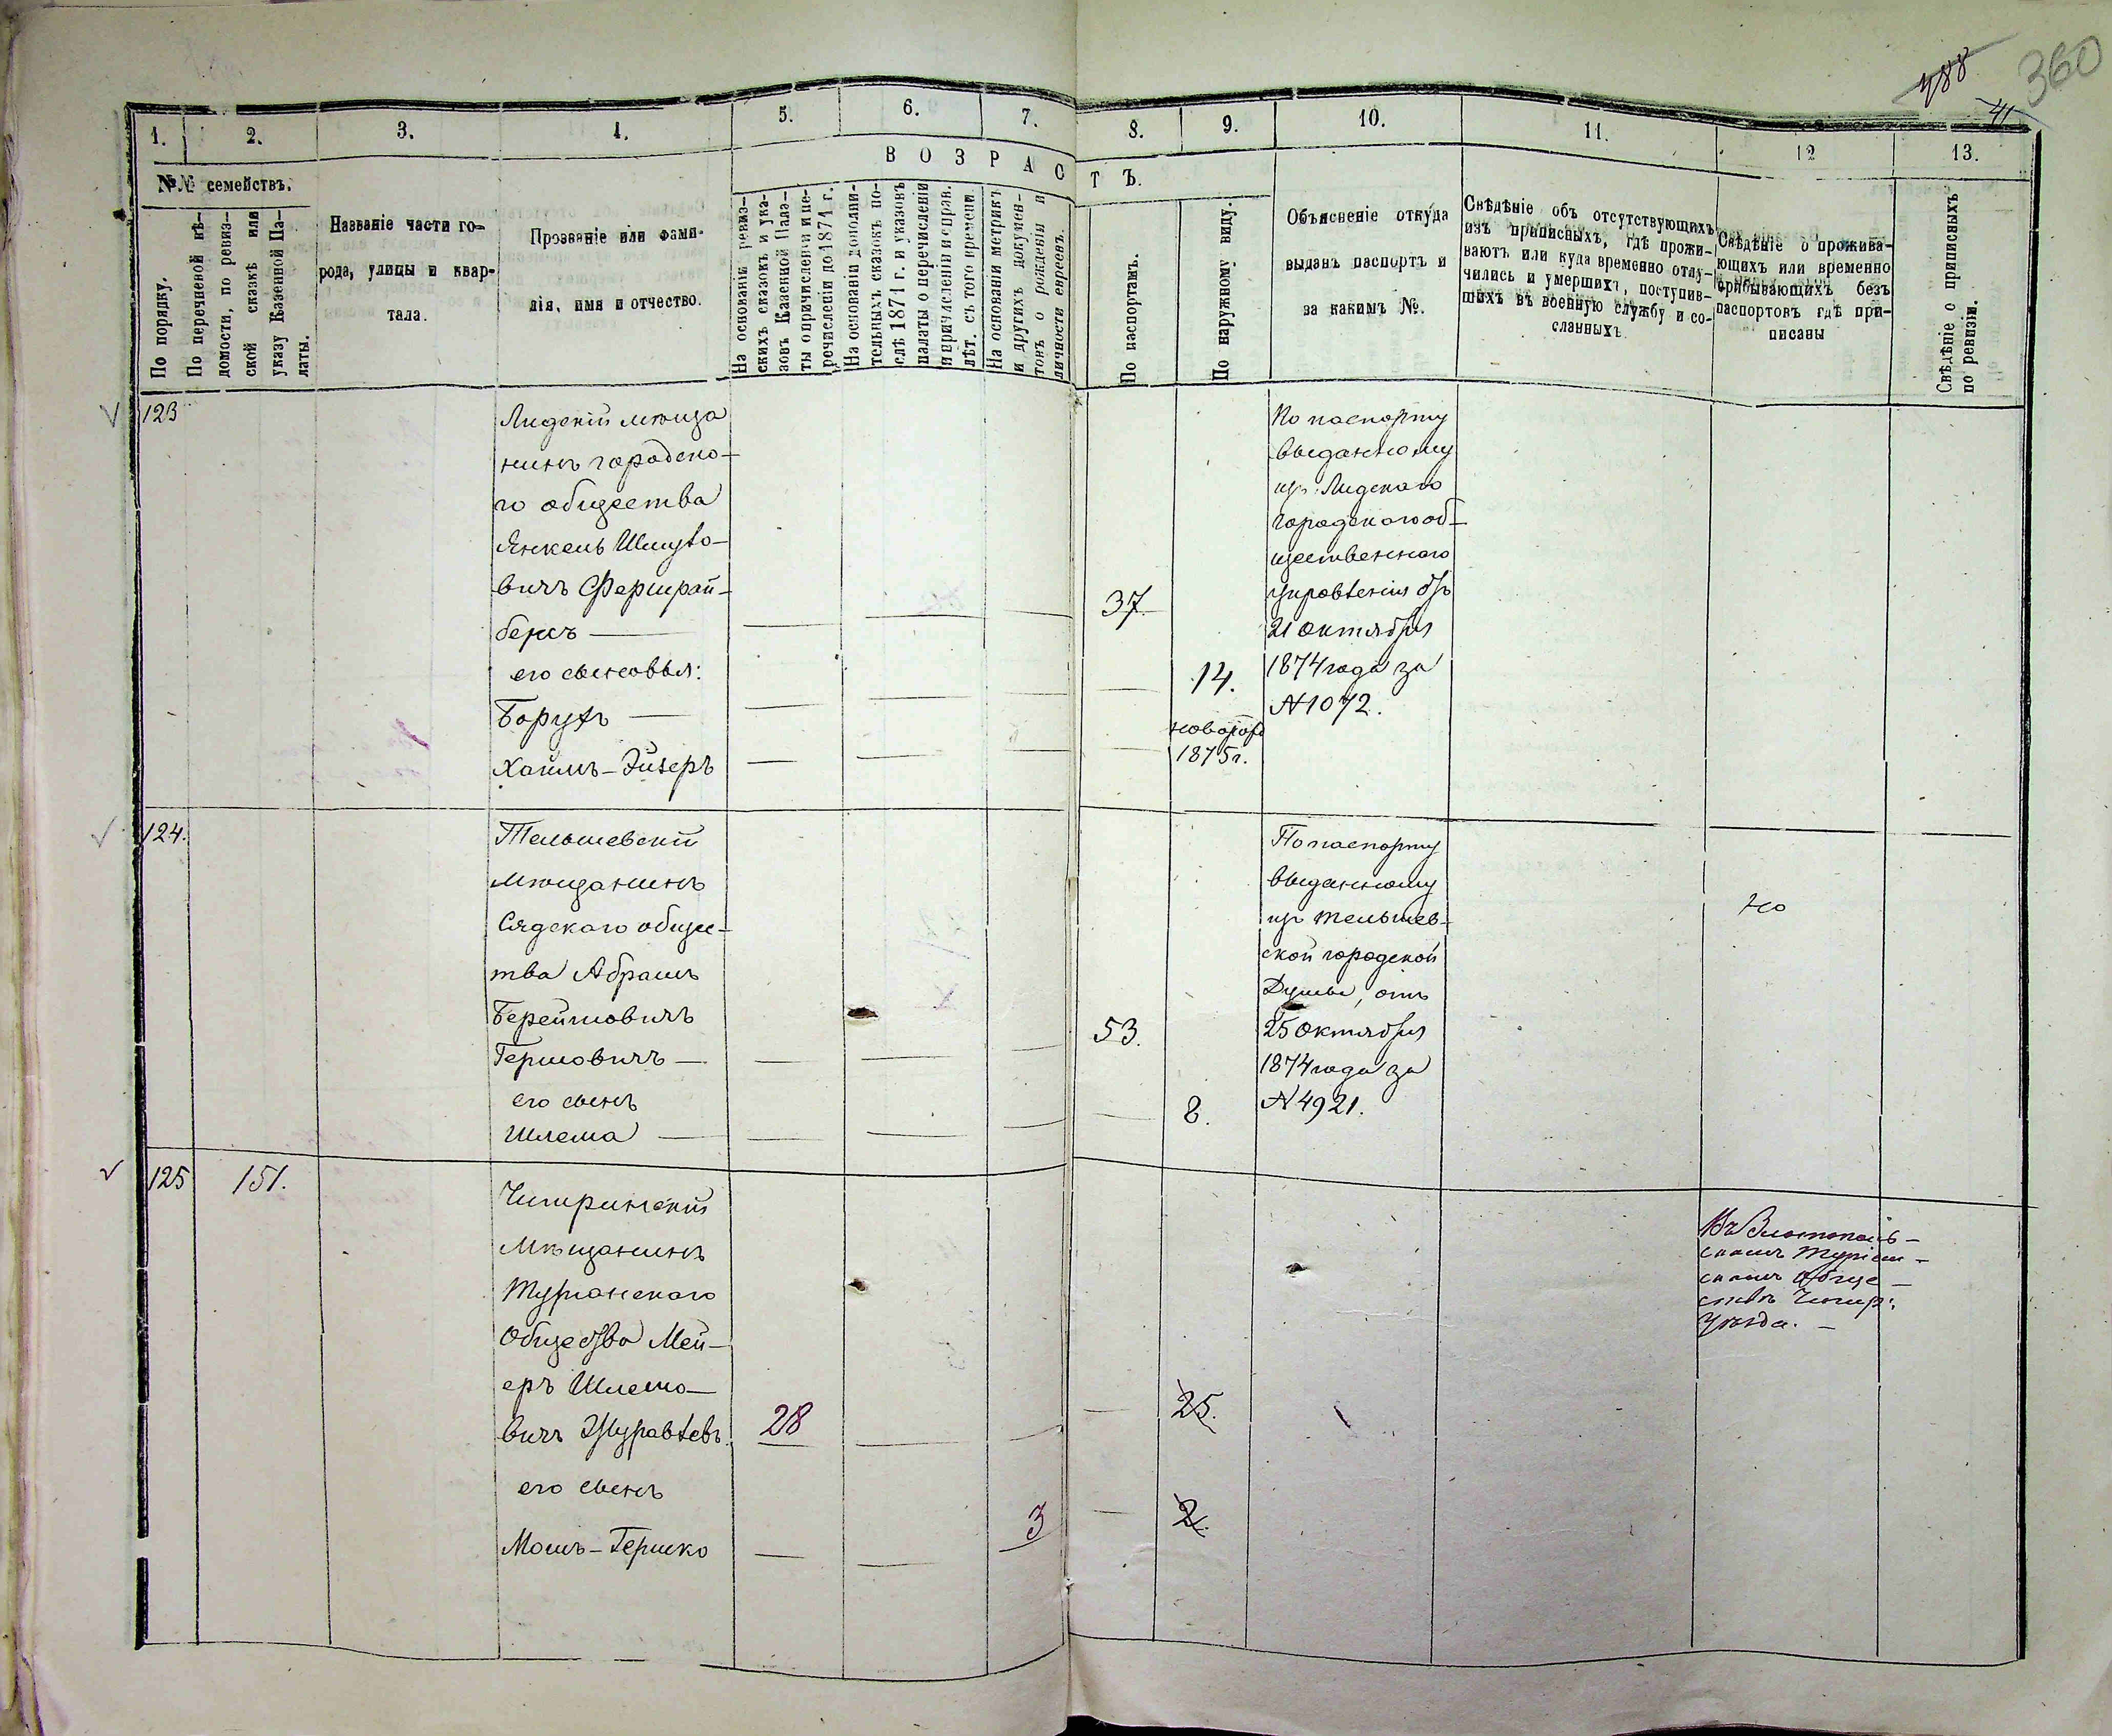 360
488
41
1.
2.
3.
4.
5.
6.
7.
8.
9.
10.
11.
12
13.
№№ семействъ.
В О З Р А С Т Ъ.
По порядку.
По перечневой вѣ-
домости, по ревиз-
ской сказкѣ или
указу Казенной Па-
латы.
Названіе части го-
рода, улицы и квар-
тала.
Прозваніе или фами-
лія, имя и отчество.
На основаніи ревиз-
скихъ сказокъ и ука-
зовъ Казенной Пала-
ты о причисленіи и пе-
речисленіи до 1871 г.
На основаніи дополни-
тельныхъ сказокъ по-
слѣ 1871 г. и указовъ
палаты о перечисленіи
и причисленіи и справ.
лѣт. съ того времени.
На основаніи метрикъ
и другихъ докумен-
товъ о рожденіи и
личности евреевъ.
По паспортамъ.
По наружному виду.
Объясненіе откуда
выданъ паспортъ и
за какимъ №.
Свѣдѣніе объ отсутствующихъ
изъ приписныхъ, гдѣ прожи-
ваютъ или куда временно отлу-
чились и умершихъ, поступив-
шихъ въ военную службу и со-
сланныхъ
Свѣдѣніе о прожива-
ющихъ или временно
пребывающихъ безъ
паспортовъ гдѣ при-
писаны
Свѣдѣніе о приписныхъ
по ревизіи.
123
Лидскій мѣща
нинъ городско-
го общества
Янкель Шмуло-
вичъ Ферштрай-
беръ
37.
его сыновья:
Борухъ
14.
Хаимъ-Эйзеръ
новорож
1875г.
По паспорту
выданному
изъ Лидскаго
городскаго об-
щественнаго
управленія отъ
21 октября
1874 года за
№ 1072.
124.
Тельшевскій
мѣщанинъ
Сядскаго общес-
тва Абрамъ
Берейшовичъ
Гершовичъ
53.
его сынъ
Шлема
8.
По паспорту
выданному
изъ Тельшев-
ской городской
Думы, отъ
25 октября
1874 года за
№ 4921.
125
151.
Чигиринскій
мѣщанинъ
Туріанскаго
Общества Мей-
еръ Шлемо-
вичъ Журавлевъ.
28
25.
его сынъ
Мошъ-Гершко
3
2.
Въ Златополь-
скомъ Туріан-
скомъ обще-
ствѣ Чигир:
Уѣзда.